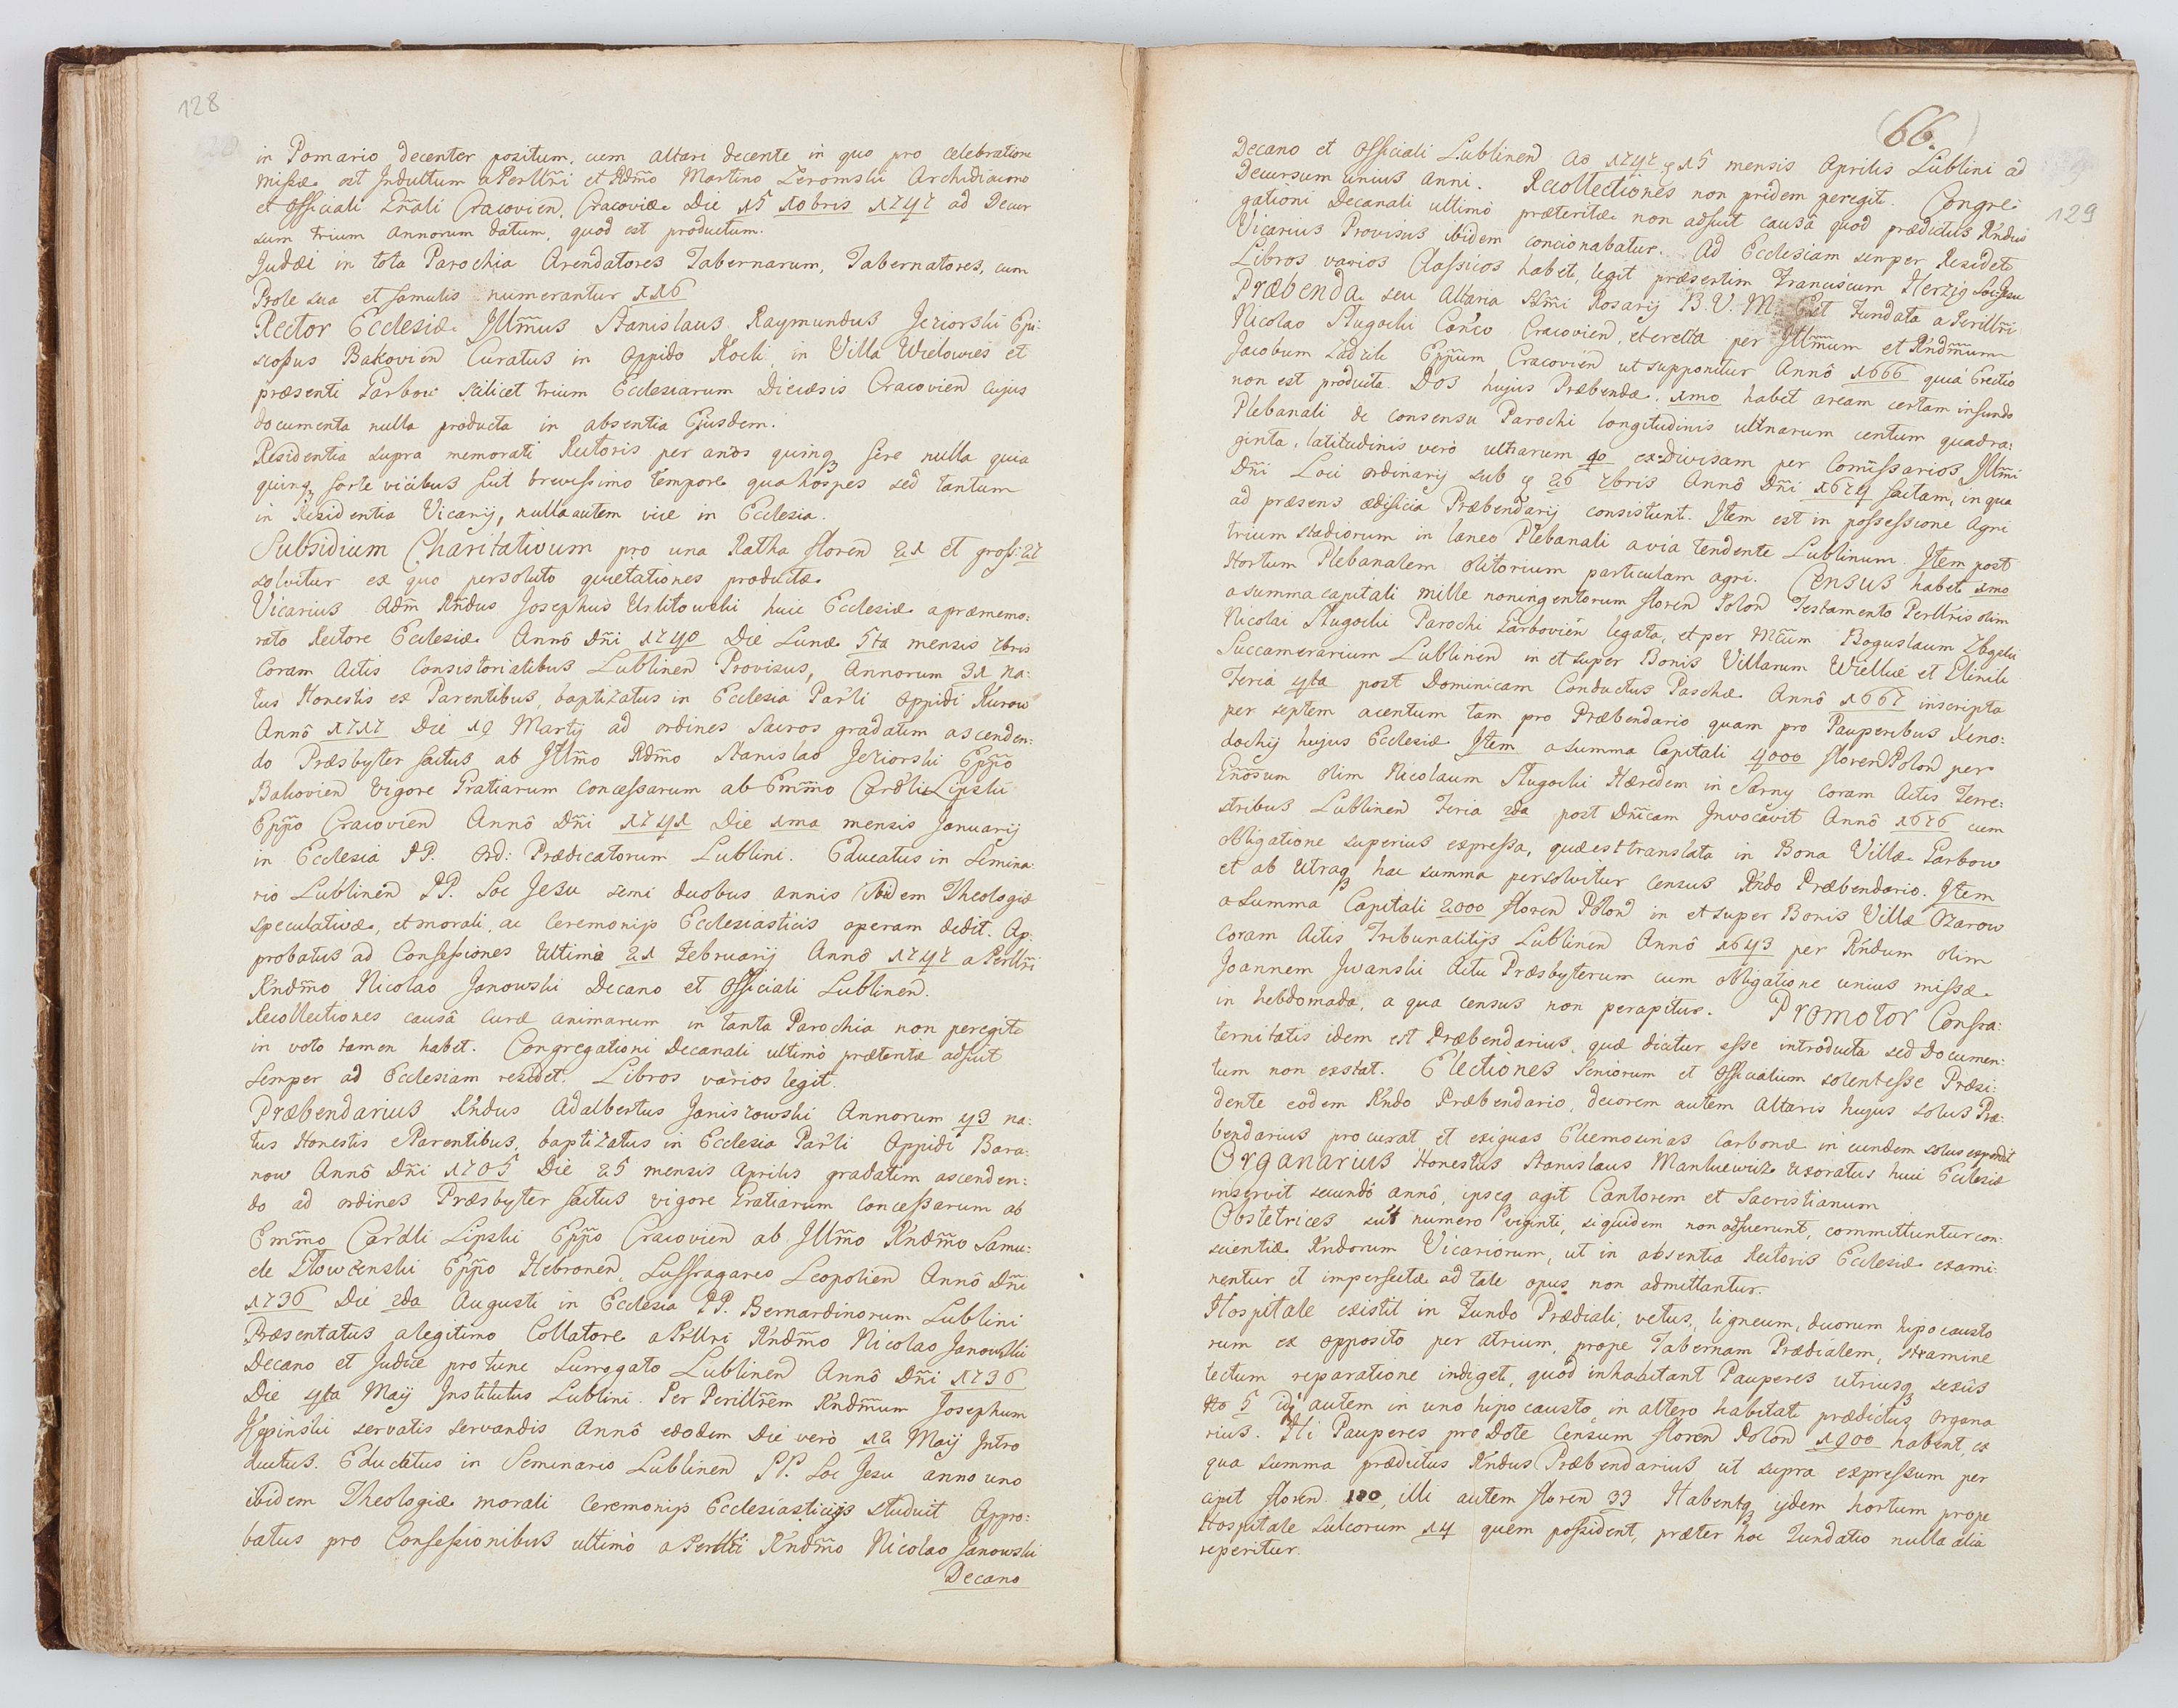 128
in Pomario decenter positum, cum altari decente in quo pro celebratione
Missæ est Indultum a Perllri et Rdmo Martino Zeromski Archidiacono
et Officiali Gnali Cracovien, Cracoviæ Die 15 10bris 1747 ad Decur
sum trium annorum datum, quod est productum.
Judæi in tota Parochia Arendatores Tabernarum, Tabernatores, cum
Prole sua et famulis numerantur 116
Rector Ecclesiæ Illmus Stanislaus Raymundus Jeziorski Epi-
scopus Bakovien Curatus in Oppido Kock, in Villa Wielowies et
præsenti Garbow scilicet trium Ecclesiarum Diecæsis Cracovien cujus
documenta nulla producta in absentia Ejusdem.
Residentia supra memorati Rectoris per anos quinq fere nulla quia
quinq forte vicibus fuit brevissimo tempore qua hospes sed tantum
in Residentia Vicarij, nulla autem vice in Ecclesia.
Subsidium Charitativum pro una Ratha floren 21 et gross: 27
solvitur ex quo persoluto quietationes productæ
Vicarius Adm Rndus Josephus Urlitowski huic Ecclesiæ a præmemo:
rato Rectore Ecclesiæ Annô Dni 1740 Die Lunæ 5ta mensis 7bris
Coram Actis Consistorialibus Lublinen Provisus, Annorum 31 na:
tus Honestis ex Parentibus, baptizatus in Ecclesia Par'li Oppidi Kurow
Annô 1717 Die 19 Martij ad ordines sacros gradatim ascenden:
do Præsbyter factus ab Illmo Rdmo Stanislao Jeziorski Eppo
Bakovien vigore Gratiarum concessarum ab Emmo Cardli Lipski
Eppo Cracovien Annô Dni 1741 Die 1ma mensis Januarij
in Ecclesia PP. Ord: Prædicatorum Lublini. Educatus in Semina:
rio Lublinen PP. Soc Jesu semi duobus annis ibidem Theologiæ
speculativæ, et morali, ac Ceremonijs Ecclesiasticis operam dedit. Ap:
probatus ad Confessiones Ultimò 21 Februarij Annô 1747 a Perllri
Rndmo Nicolao Janowski Decano et Officiali Lublinen.
Recollectiones causâ curæ animarum in tanta Parochia non peregit
in voto tamen habet. Congregationi Decanali ultimò præteritæ adfuit
Semper ad Ecclesiam residet. Libros varios legit.
Præbendarius Rndus Adalbertus Janiszowski Annorum 43 na:
tus Honestis Parentibus, baptizatus in Ecclesia Par'li Oppidi Bara:
now Annô Dni 1705 Die 25 mensis Aprilis gradatim ascenden:
do ad ordines Præsbyter factus vigore Gratiarum concessarum ab
Emmo Cardli Lipski Eppo Cracovien ab Illmo Rndmo Samu:
ele Głowczenski Eppo Hebronen, Suffraganeo Leopolien Annô Dni
1736 Die 2da Augusti in Ecclesia PP. Bernardinorum Lublini
Præsentatus a legitimo Collatore a Prllri Rndmo Nicolao Janowski
Decano et Judice pro tunc Surrogato Lublinen Annô Dni 1736
Die 4ta Maij Institutus Lublini. Per Perillrem Rndmum Josephum
servatis servandis Annô eodem Die verò 12 Maij Intro
ductus. Educatus in Seminario Lublinen PP. Soc Jesu anno uno
ibidem Theologiæ morali Ceremonijs Ecclesiasticijs studuit Appro:
batus pro Confessionibus ultimò a Perllri Rndmo Nicolao Janowski
Decano
66.
129
Decano et Officiali Lublinen Ao 1747 15 mensis Aprilis Lublini ad
Decursum unius anni. Recollectiones non pridem peregit. Congre:
gationi Decanali ultimò præteritæ non adfuit causâ quod prædictus Rndus
Vicarius Provisus ibidem concionabatur. Ad Ecclesiam semper Residet
Libros varios Classicos habet, legit præsertim Franciscum Herzig Soc: Jesu
Præbenda seu Altaria SSmi Rosarij B. V. M. Est Fundata a Perillri
Nicolao Slugocki Can'co Cracovien, et erecta per Illmum et Rndmum
Jacobum Zadzik Eppum Cracovien ut supponitur Annô 1666 quia Erectio
non est producta. Dos hujus Præbendæ. 1mo habet aream certam in fundo
Plebanali de consensu Parochi longitudinis ulnarum centum quadra:
ginta, latitudinis verò ulnarum 40 ex divisam per Comissarios Illmi
Dni Loci Ordinarij sub 26 7bris Annô Dni 1674 factam, in qua
ad præsens ædificia Præbendarij consistunt. Item est in possessione Agri
trium stadiorum in laneo Plebanali a via tendente Lublinum. Item post
Hortum Plebanalem olitorium particulam agri. Census habet 1mo
a summa capitali mille noningentorum floren Polon Testamento Perllris olim
Nicolai Slugocki Parochi Garbovien legata, et per Mcum Boguslaum Zbąski
Succamerarium Lublinen in et super Bonis Villarum Wielkie et Elinik
Feria 4ta post Dominicam Conductus Paschæ Annô 1667 inscripta
per septem a centum tam pro Præbendario quam pro Pauperibus Xeno:
dochij hujus Ecclesiæ Item a summa Capitali 4000 floren Polon per
Gnosum olim Nicolaum Slugocki Hæredem in Sarny Coram Actis Terre:
stribus Lublinen Feria 2da post Dnicam Invocavit Annô 1676 cum
obligatione superius expressa, quæ est translata in Bona Villæ Garbow
et ab utraq hac summa persolvitur census Rndo Præbendario. Item
a summa Capitali 2000 floren Polon in et super Bonis Villæ Ozarow
Coram Actis Tribunalitijs Lublinen Annô 1643 per Rndum olim
Joannem Jwanski Actu Præsbyterum cum obligatione unius missæ
in hebdomada, a qua census non perapitur. Promotor Confra:
ternitatis idem est Præbendarius, quæ dicitur esse introducta sed Documen:
tum non exstat. Electiones Seniorum et Officialium solent esse Præsi:
dente eodem Rndo Præbendario, decorem autem Altaris hujus solus Præ:
bendarius procurat et exiguas Eleemosinas Carbonæ in eundem solus expendit
Organarius Honestus Stanislaus Mankiewicz uxoratus huic Ecclesiæ
inservit secundò annô, ipseq agit Cantorem et Sacristianum
Obstetrices sut numero viginti, siquidem non adfuerunt, committuntur con:
scientiæ Rndorum Vicariorum, ut in absentia Rectoris Ecclesiæ exami:
nentur et imperfectæ ad tale opus non admittantur.
Hospitale existit in Fundo Prædiali, vetus, ligneum, duorum hipocausto
rum ex opposito per atrium, prope Tabernam Prædialem, stramine
tectum reparatione indiget, quod inhabitant Pauperes utriusq sexûs
No 5 idq autem in uno hipocausto, in altero habitat prædictus Organa
rius. Hi Pauperes pro Dote Censum floren Polon 1900 habent, ex
qua summa prædictus Rndus Præbendarius ut supra expressum per
cipit floren. 100, illi autem floren 33 Habentq ijdem hortum prope
Hospitale Sulcorum 14 quem possident, præter hoc Fundatio nulla alia
reperitur.